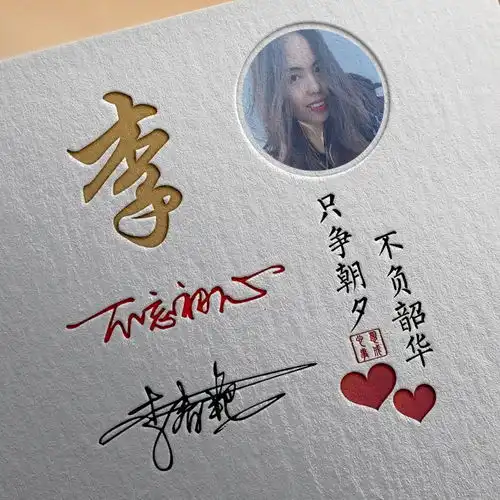 李
不忘初心
李春艳
只争朝夕
不负韶华